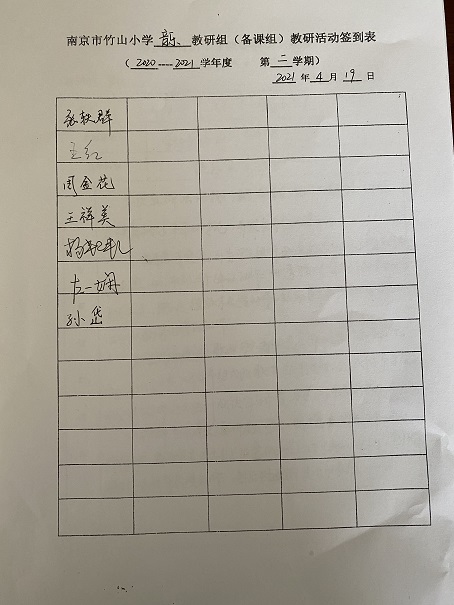 南京市竹山小学 音乐 教研组（备课组）教研活动签到表
（ 2020----2021 学年度 第 二 学期）
2021 年 4 月 19 日
王红
周金花
王祥美
左一娴
孙岱